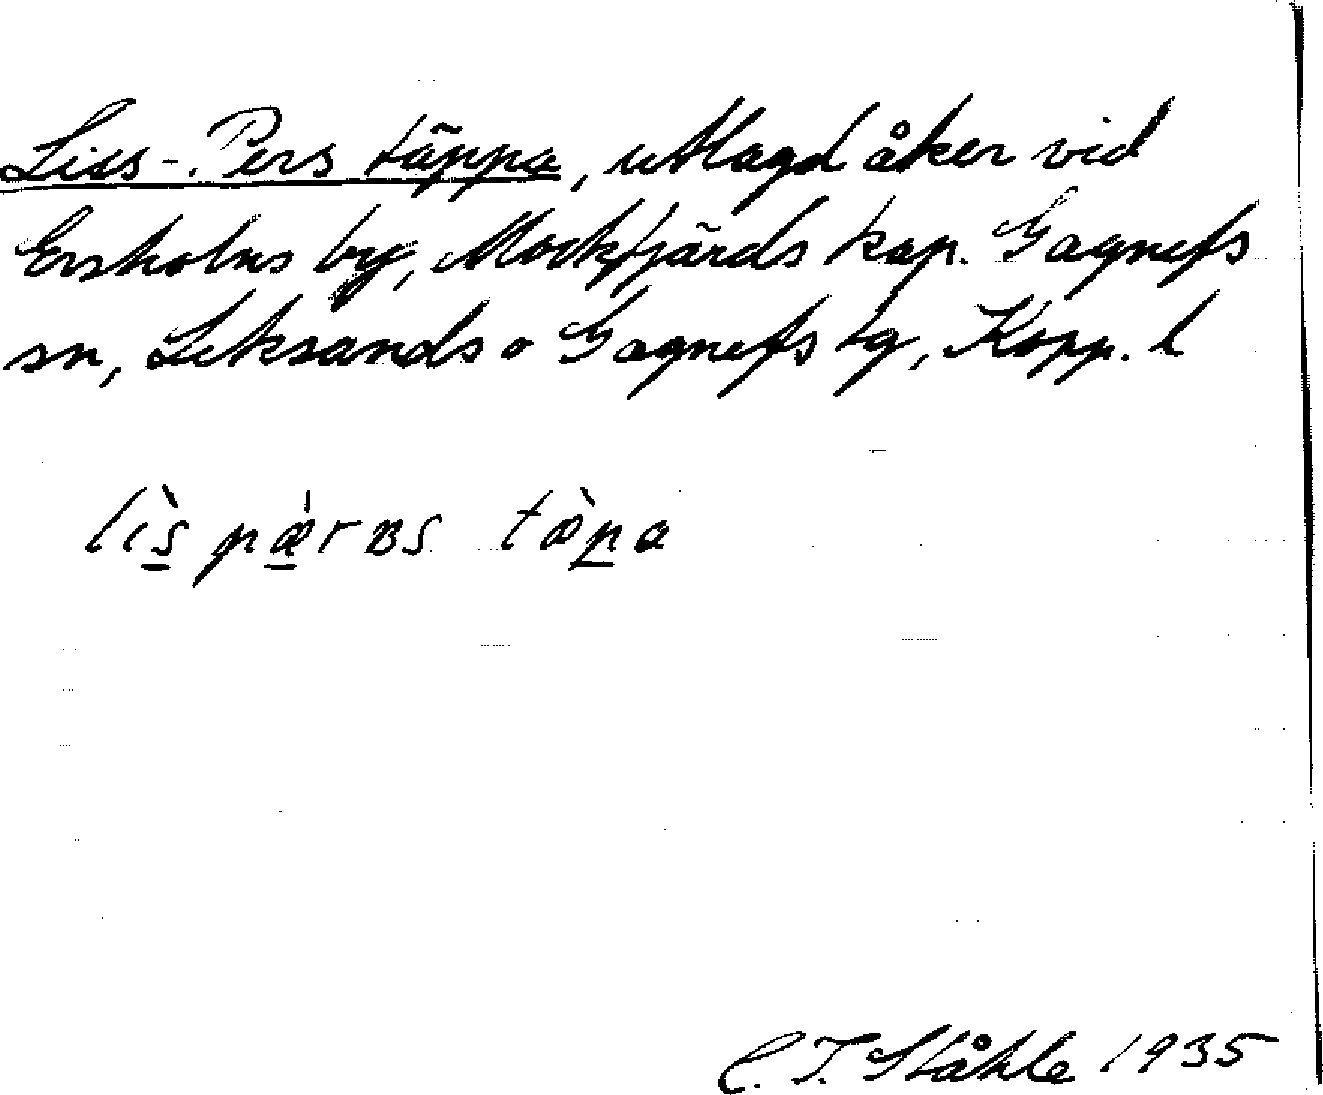 Liss-Pers täppa, utlagd åker vid
Ersholns by, Mockfjärds kap. Gagnefs
sn, Leksands o Gagnefs tg, Kopp. l
lìs pǽrɐs tæ̀pa
C. I. Ståhle 1935